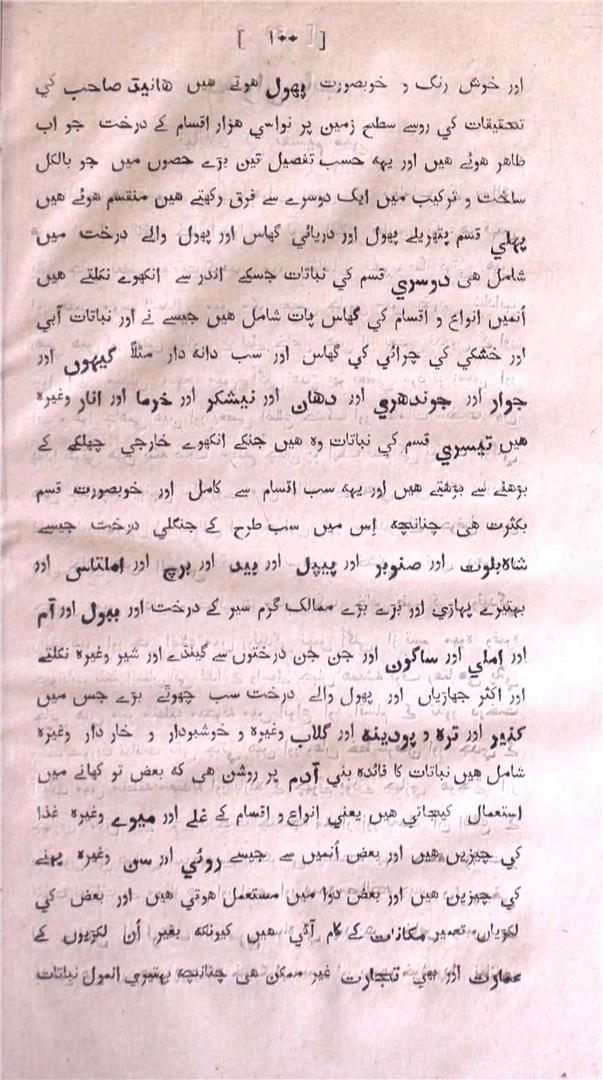 [ ۱۰۰ ]
اور خوش رنگ و خوبصورت پھول هوتے هیں هانیق صاحب کي
تحقیقات کي روسے سطح زمین پر نواسي هزار اقسام کے درخت جو اب
ظاهر هوئے هیں اور یهه حسب تفصیل تین بڑے حصوں میں جو بالکل
ساخت و ترکیب میں ایک دوسرے سے فرق رکھتے هین منقسم هوئے هیں
پهلي قسم پتهریلے پھول اور دریائي گھاس اور پھول والے درخت میں
شامل هی دوسري قسم کي نباتات جسکے اندر سے انکھوے نکلتے هیں
اُنمیں انواع و اقسام کي گھاس پات شامل هیں جیسے نے اور نباتات آبي
اور خشکي کي چرائي کي گھاس اور سب دانه دار مثلاً گیهوں اور
جوار اور جوندهري اور دهان اور نیشکر اور خرما اور انار وغیرہ
هیں تیسري قسم کي نباتات وہ هیں جنکے انکھوے خارجي چھلکے کے
بڑهنے سے بڑهتے هیں اور یهه سب اقسام سے کامل اور خوبصورت قسم
بکثرت هی چنانچه اِس میں سب طرح کے جنگلي درخت جیسے
شاہ‌بلوت اور صنوبر اور پیپل اور بید اور برچ اور املتاس اور
بهتیرے پهاڑي اور بڑے بڑے ممالک گرم سیر کے درخت اور ببول اور آم
اور املي اور ساگون اور جن جن درختوں سے گیندے اور شیر وغیرہ نکلتے
اور اکثر جهاڑیاں اور پھول والے درخت سب چھوٹے بڑے جس میں
کنیر اور ترہ و پودینه اور گلاب وغیرہ و خوشبودار و خار دار وغیرہ
شامل هیں نباتات کا فائدہ بني آدم پر روشن هی که بعض تو کھانے میں
استعمال کیجاتي هیں یعني انواع و اقسام کے غلے اور میوے وغیرہ غذا
کي چیزیں هیں اور بعض اُنمیں سے جیسے روئي اور سن وغیرہ پهنے
کي چیزیں هیں اور بعض دوا میں مستعمل هوتي هیں اور بعض کي
لکڑیاں تعمیر مکانات کے کام آتي هیں کیونکه بغیر اُن لکڑیوں کے
عمارت اور بهي تجارت غیر ممکن هی چنانچه بهتیري انمول نباتات